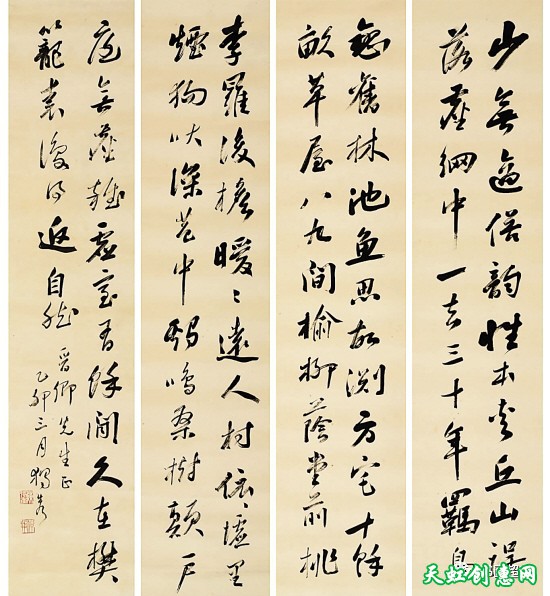 少無適俗韻性本愛丘山誤
落塵網中一去三十年羈鳥
戀舊林池魚思故淵方宅十餘
畝草屋八九間榆柳蔭堂前桃
李羅後檐曖〻遠人村依〻墟里
煙狗吠深巷中鷄鳴桑樹顛戶
庭無塵雜虛室有餘閒久在樊
籠裏復得返自然
晉卿先生正
乙卯三月獨秀
天虹创意网